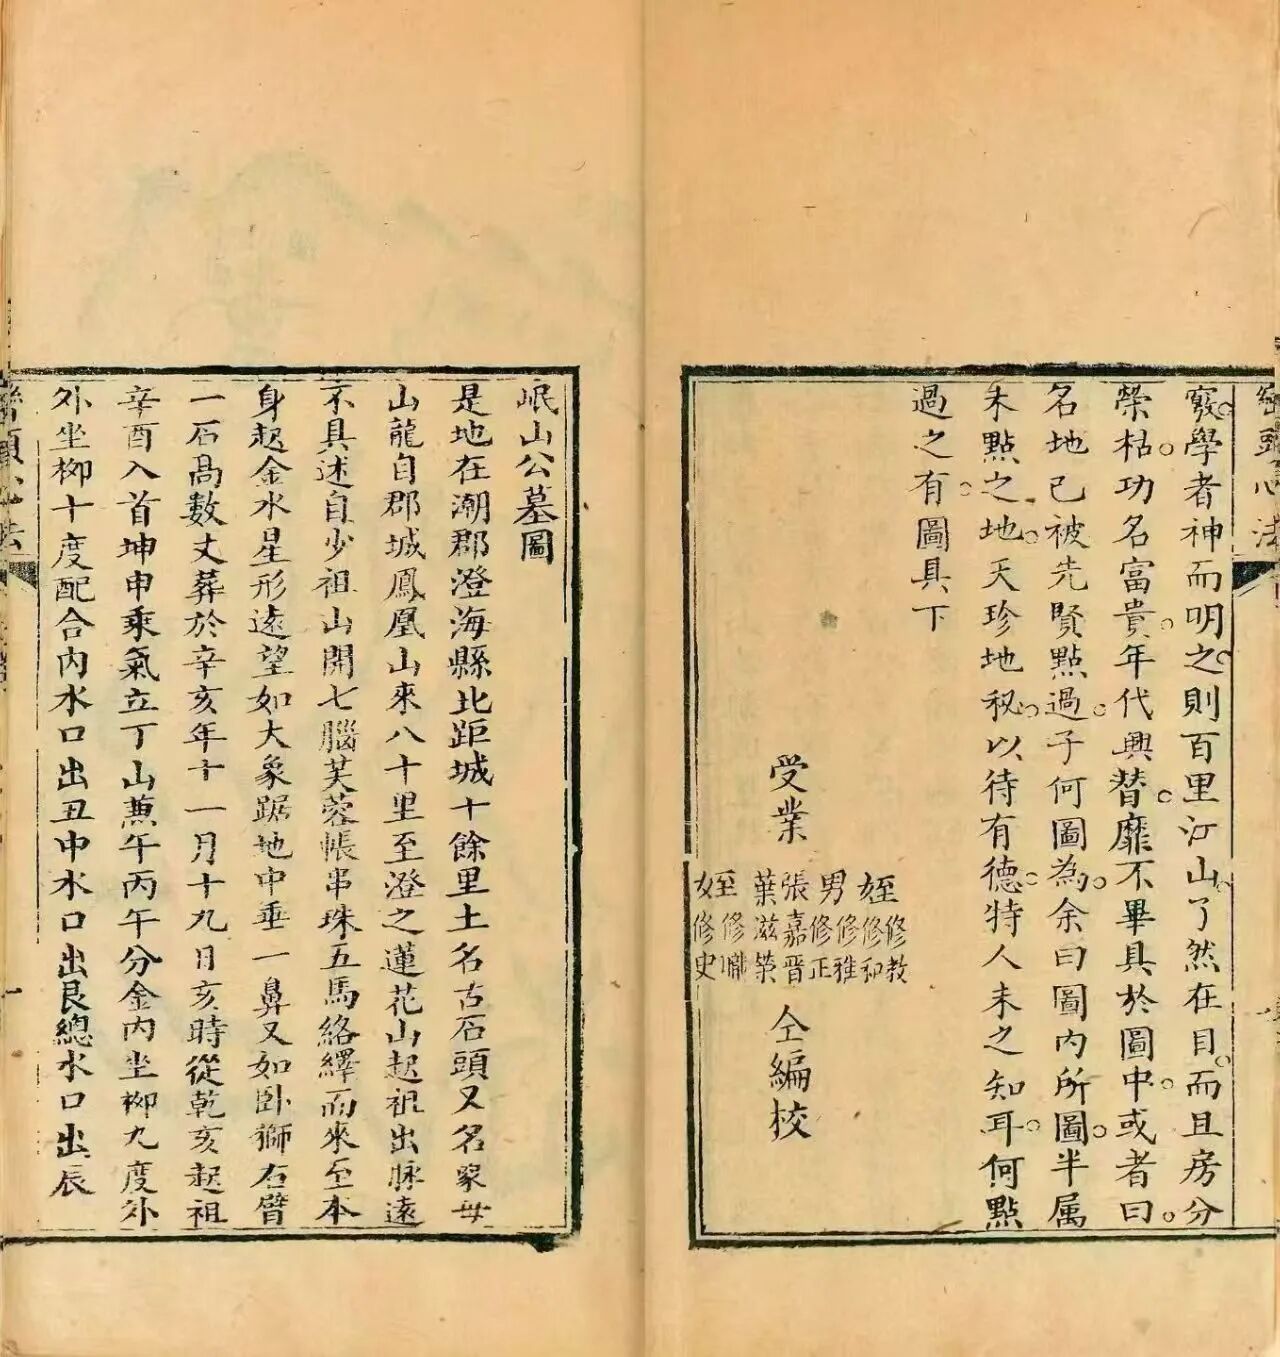 巒頭心法
竅學者神而明之則百里江山了然在目而且房分
榮枯功名富貴年代興替靡不畢具於圖中或者曰
名地已被先賢點過子何圖為余曰圖內所圖半属
未點之地天珍地秘以待有德特人未之知耳何點
過之有圖具下
受業
姪修教
修和
男修雅
修正
張嘉晋
葉滋榮
姪修職
修史
仝編校
岷山公墓圖
是地在潮郡澄海縣北距城十餘里土名古石頭又名象母
山龍自郡城鳳凰山來八十里至澄之蓮花山起祖出脉遠
不具述自少祖山開七腦芙蓉帳串珠五馬絡繹而來至本
身起金水星形遠望如大象踞地中垂一鼻又如卧獅右臂
一石高數丈葬於辛亥年十一月十九日亥時從乾亥起祖
辛酉入首坤申乘氣立丁山蒹午丙午分金內坐柳九度外
外坐柳十度配合內水口出丑中水口出艮總水口出辰
巒頭心法